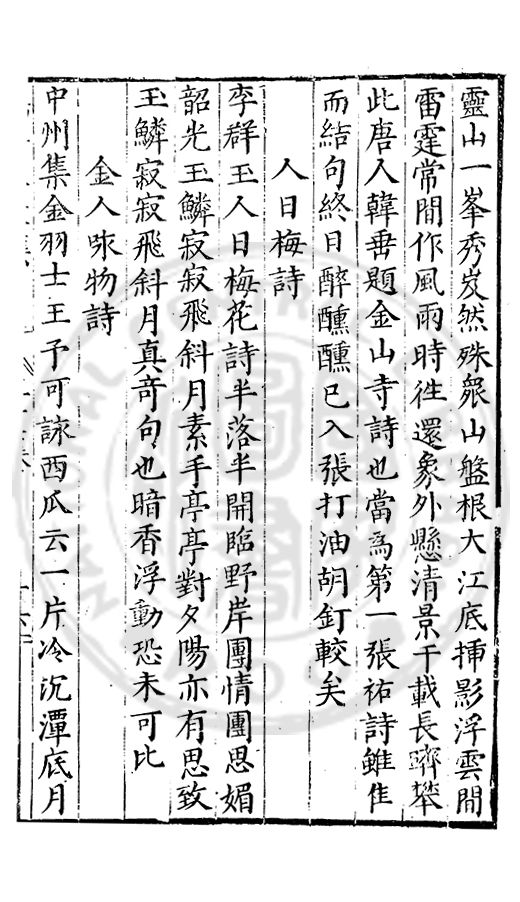 靈山一峯秀岌然殊衆山盤根大江底揷影浮雲間
雷霆常間作風雨時徃還象外懸清景千載長躋攀
此唐人韓垂題金山寺詩也當爲第一張祐詩雖佳
而結句終日醉醺醺已入張打油胡釘較矣
人日梅詩
李群玉人日梅花詩半落半開臨野岸團情團思媚
韶光玉鱗寂寂飛斜月素手亭亭對夕陽亦有思致
玉鱗寂寂飛斜月真竒句也暗香浮動恐未可比
金人咏物詩
中州集金羽士王予可詠西瓜云一片冷沉潭底月